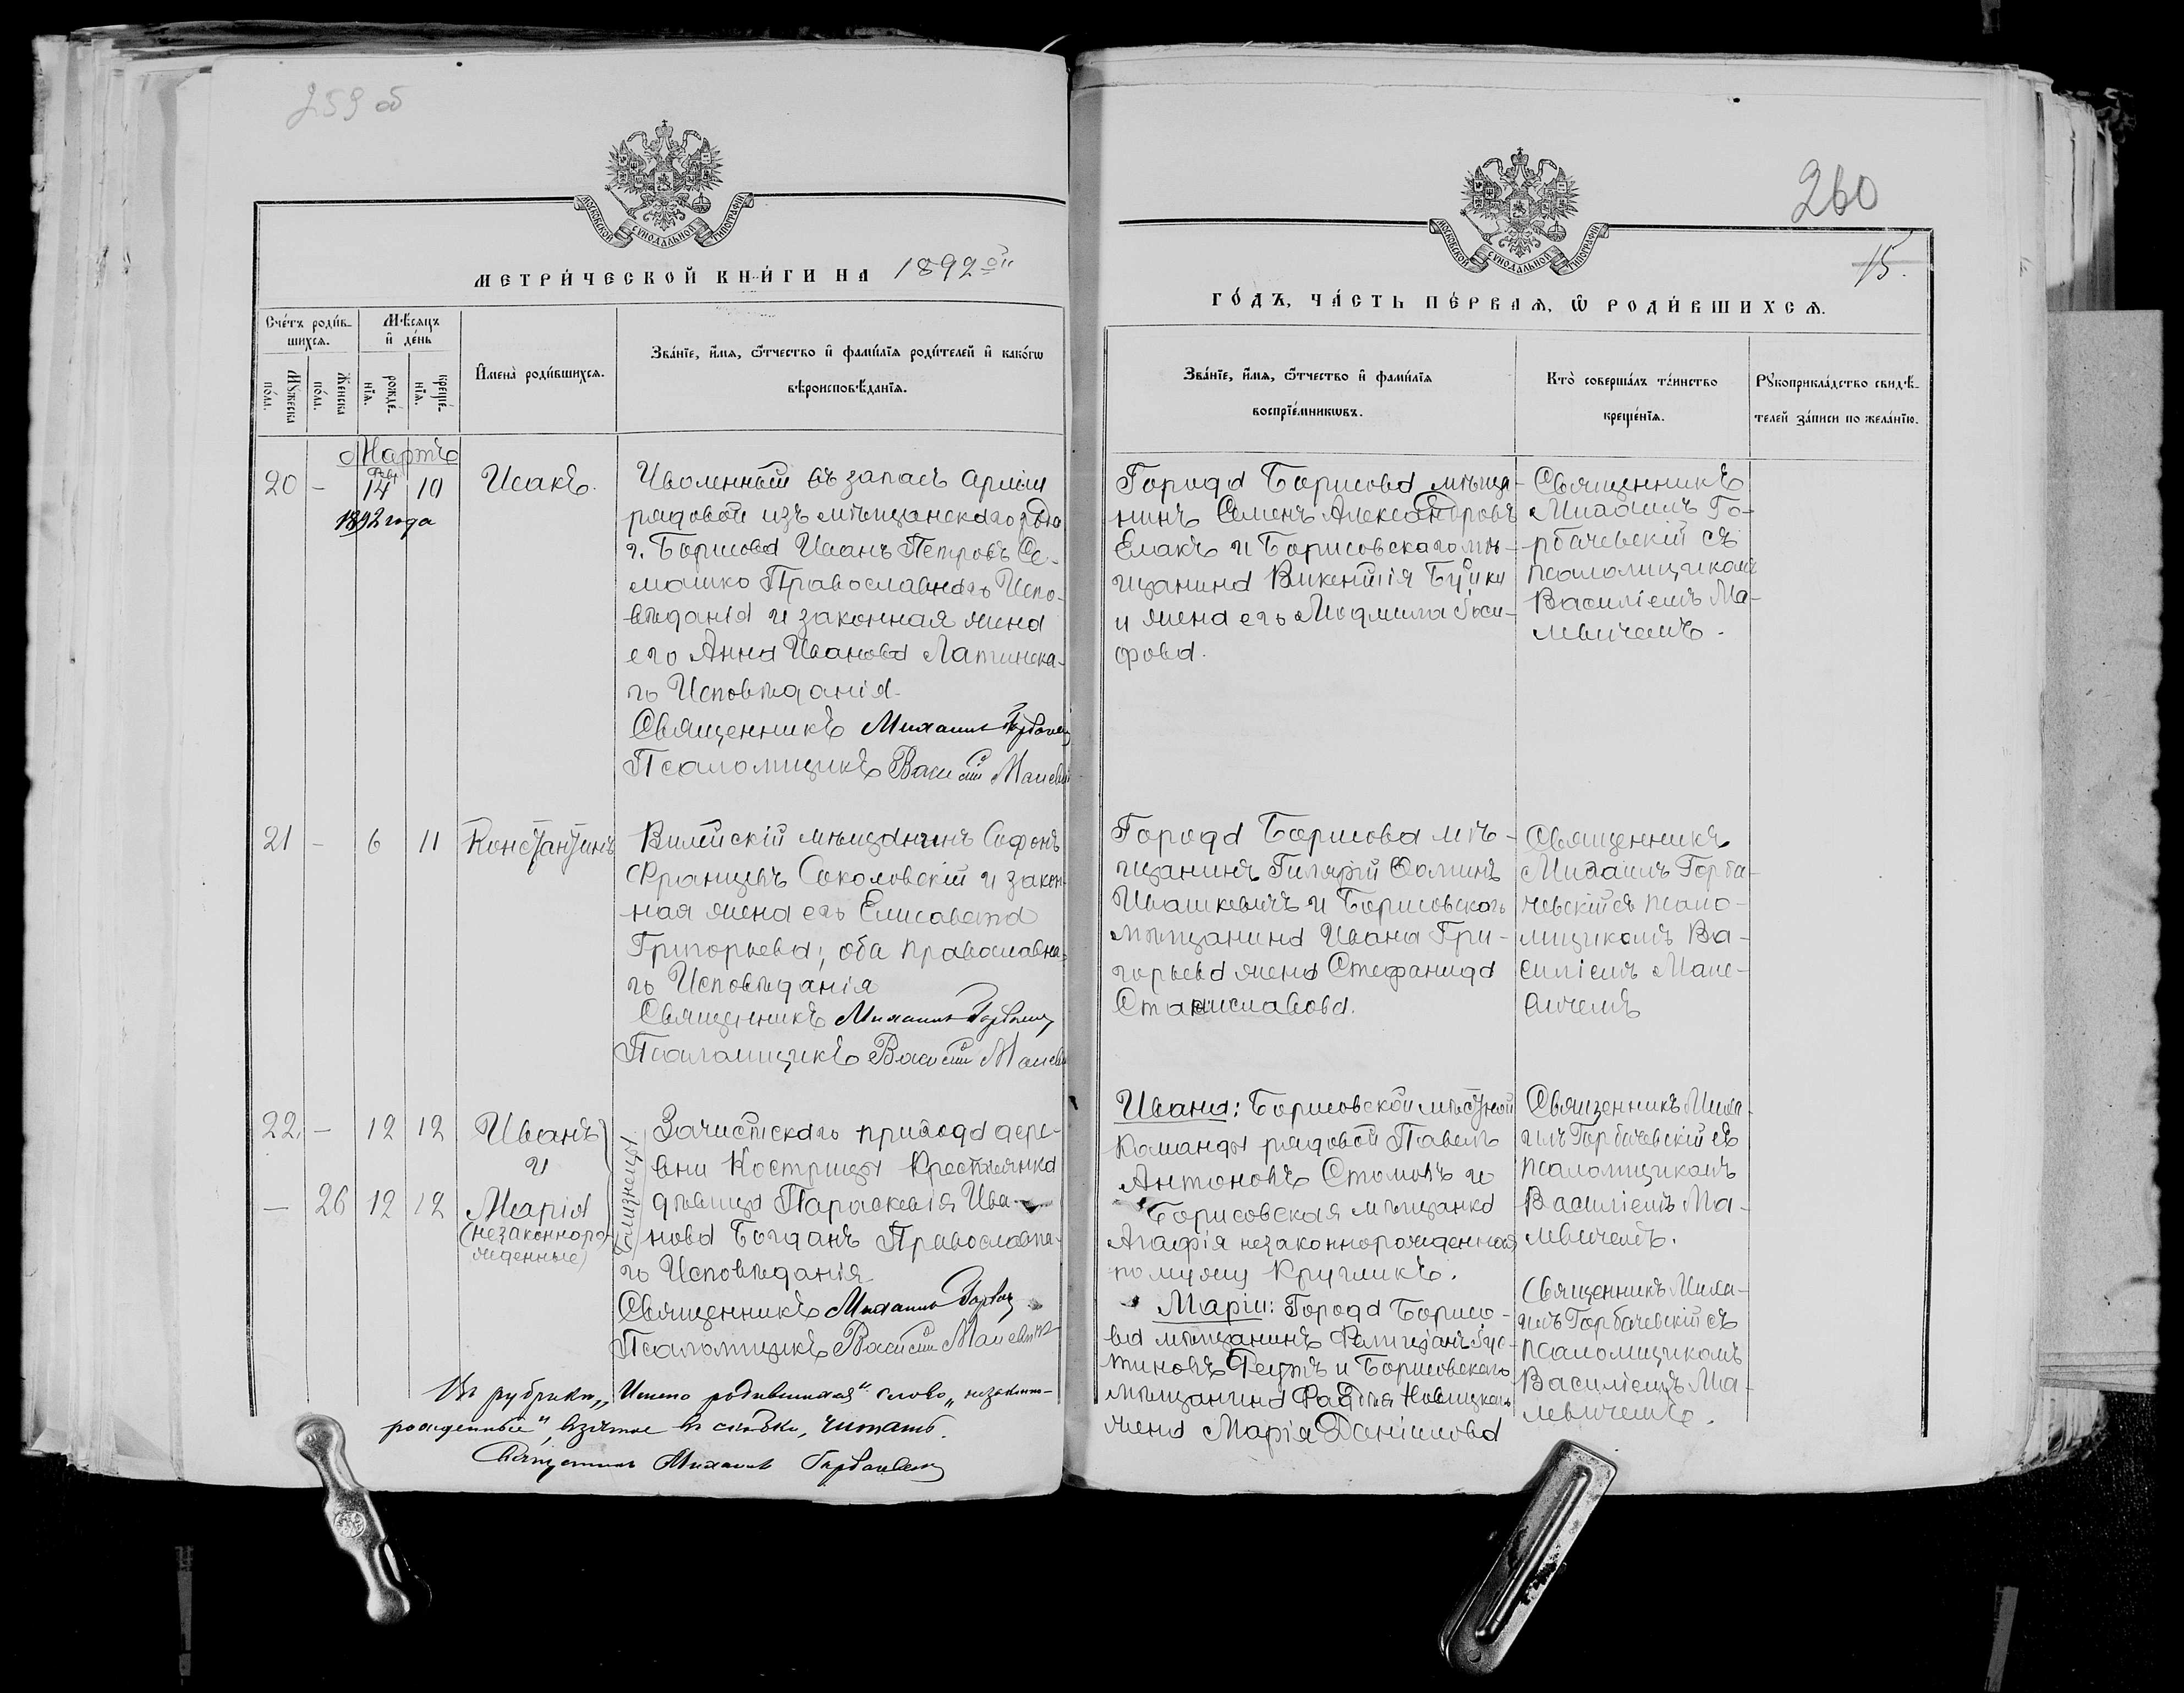 259 об
МОСКОВСКОЙ СѴНОДАЛЬНОЙ ТИПОГРАФІИ
МЕТРИ́ЧЕСКОЙ КНИ́ГИ НА 1892ой
Сче́тъ роди́в-
шихсѧ.
Мѣ́сяцъ
и҆ де́нь
Мꙋ́жеска
по́ла.
Же́нска
по́ла.
рожде́-
нїѧ.
креще́-
нїѧ.
И҆мена̀ роди́вшихсѧ.
Зва́нїе, и҆́мѧ, ѻ҆́тчество и҆ фами́лїѧ роди́телей и҆ како́гѡ
вѣроисповѣ́данїѧ.
Мартъ
20 - 14 10 Исакъ.
1892 года
Уволенный въ запасъ Арміи
рядовой изъ мѣщанскаго
г. Борисова Иванъ Петровъ Се-
машко Православнаго Испо-
вѣданія и законная жена
его Анна Иванова Латинска-
го Исповѣданія.
Священникъ Михаилъ
Псаломщикъ Василій
21 - 6 11 Константинъ
Вилейскій мѣщанинъ Софонъ
Францевъ Соколовскій и закон-
ная жена его Елисавета
Григорьева; оба православна-
го Исповѣданія
Священникъ Михаилъ
Псаломщикъ Василій
22. - 12 12 Иванъ
и
— 26 12 12 Марія
(незаконноро-
жденные)
близнецы
Зачистскаго прихода дере-
вни Кострицы Крестьянка
дѣвица Параскевія Ива-
нова Богданъ Православна-
го Исповѣданія.
Священникъ Михаилъ
Псаломщикъ Василій Малевичъ
Въ рубрикѣ „Имена родившихся“ слово „незаконно-
рожденные“, взятое въ скобки, читать.
Священникъ Михаилъ Горбачевскій
260
15.
МОСКОВСКОЙ СѴНОДАЛЬНОЙ ТИПОГРАФІИ
ГО́ДЪ, ЧА́СТЬ ПЕ́РВАѦ, Ѽ РОДИ́ВШИХСѦ.
Зва́нїе, и҆́мѧ, ѻ҆́тчество и҆ фами́лїѧ
воспрїе́мникѡвъ.
Кто̀ соверша́лъ та́инство
креще́нїѧ.
Рꙋкоприкла́дство свидѣ́-
телей за́писи по жела́нїю.
Города Борисова мѣща-
нинъ Семенъ Александровъ
Елакъ и Борисовскаго мѣ-
щанина Викентія
и жена его Людмила Іоси-
фова.
Священникъ
Михаилъ Го-
рбачевскій съ
псаломщикомъ
Василіемъ Ма-
левичемъ.
Города Борисова мѣ-
щанинъ Гилярій Ѳоминъ
Ивашкевичъ и Борисовскаго
мѣщанина Ивана Гри-
горьева жена Стефанида
Станиславова.
Священникъ
Михаилъ Горба-
чевскій съ псало-
мщикомъ Ва-
силіемъ Мале-
вичемъ
Ивана: Борисовской мѣстной
Команды рядовой Павелъ
Антоновъ Стомовъ и
Борисовская мѣщанка
Агафія незаконнорожденная,
по мужу Кругликъ.
Священникъ Миха-
илъ Горбачевскій съ
псаломщикомъ
Василіемъ Ма-
левичемъ.
Маріи: Города Борисо-
ва мѣщанинъ Фелиціанъ Іус-
тиновъ и Борисовскаго
мѣщанина Новицкаго
жена Марія Даніилова
Священникъ Миха-
илъ Горбачевскій съ
псаломщикомъ
Василіемъ Ма-
левичемъ.